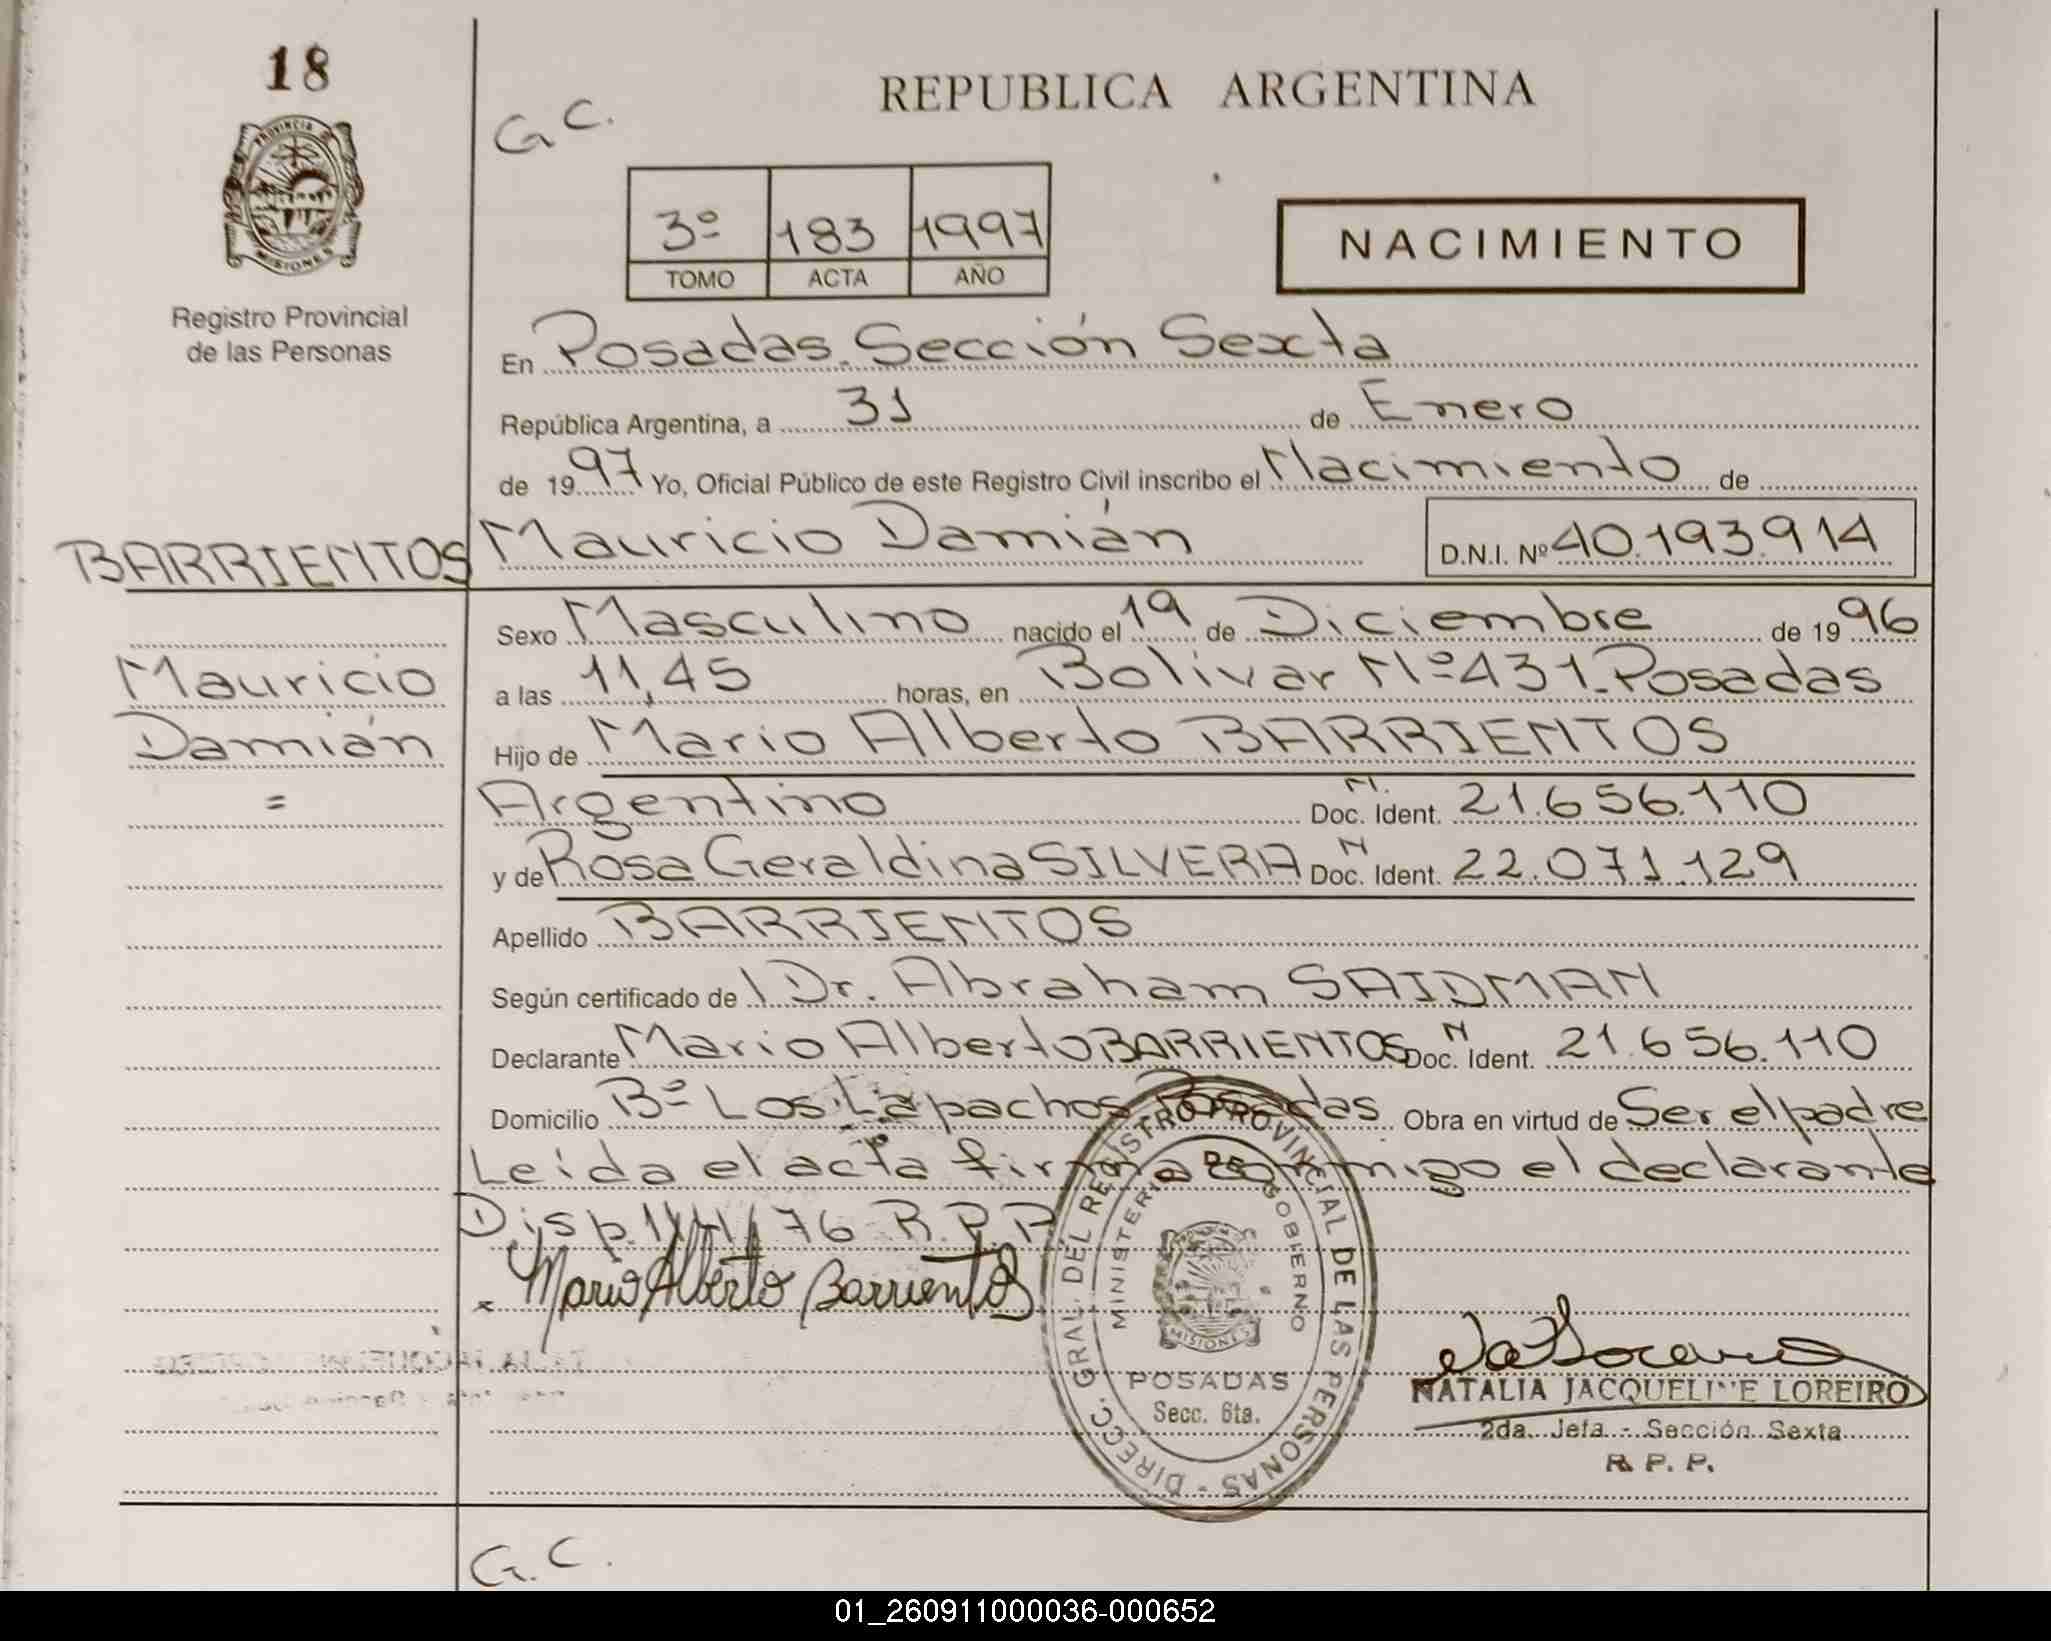 18
REPUBLICA ARGENTINA
G C.
PROVINCIA DE
MISIONES
Registro Provincial
de las Personas
3º 183 1997
TOMO ACTA AÑO
NACIMIENTO
En Posadas. Sección Sexta
República Argentina, a 31 de Enero
de 1997 Yo, Oficial Público de este Registro Civil inscribo el Nacimiento de
BARRIENTOS Mauricio Damián D.N.I. Nº 40.193.914
Sexo Masculino nacido el 19 de Diciembre de 1996
Mauricio
a las 11,45 horas, en Bolivar Nº 431. Posadas
Damián
Hijo de Mario Alberto BARRIENTOS
=
Argentino N. Doc. Ident. 21.656.110
y de Rosa Geraldina SILVERA N Doc. Ident. 22.071.129
Apellido BARRIENTOS
Según certificado de Dr. Abraham SAIDMAN
Declarante Mario Alberto BARRIENTOS N Doc. Ident. 21.656.110
Domicilio Bº Los Lapachos Posadas Obra en virtud de Ser el padre
Leída el acta firma conmigo el declarante
Disp. 76 R.P.P
x Mario Alberto Barrientos
DIRECC. GRAL. DEL REGISTRO PROVINCIAL DE LAS PERSONAS -
MINISTERIO DE GOBIERNO
MISIONES
POSADAS
Secc. 6ta.
NATALIA JACQUELINE LOREIRO
2da. Jefa - Sección Sexta
R. P. P.
G. C.
01_260911000036-000652